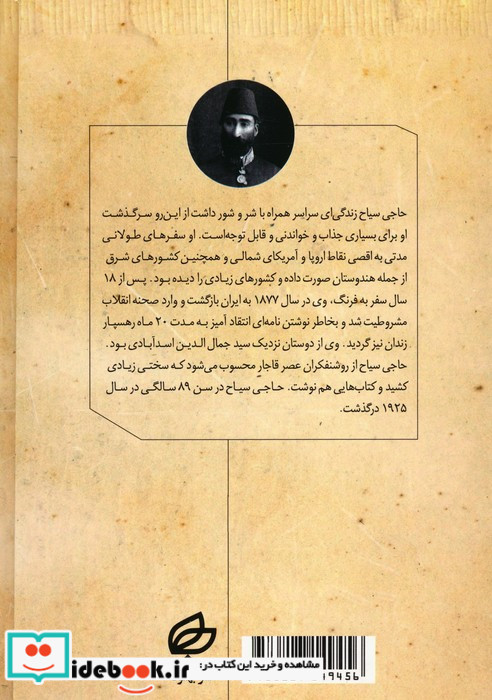 حاجی سیاح زندگی‌ای سراسر همراه با شر و شور داشت از این‌رو سرگذشت
او برای بسیاری جذاب و خواندنی و قابل توجه‌است. او سفرهای طولانی
مدتی به اقصی نقاط اروپا و آمریکای شمالی و همچنین کشورهای شرق
از جمله هندوستان صورت داده و کشورهای زیادی را دیده بود. پس از ۱۸
سال سفر به فرنگ، وی در سال ۱۸۷۷ به ایران بازگشت و وارد صحنه انقلاب
مشروطیت شد و بخاطر نوشتن نامه‌ای انتقاد آمیز به مدت ۲۰ ماه رهسپار
زندان نیز گردید. وی از دوستان نزدیک سید جمال الدین اسدآبادی بود.
حاجی سیاح از روشنفکران عصر قاجار محسوب می‌شود که سختی زیادی
کشید و کتاب‌هایی هم نوشت. حاجی سیاح در سن ۸۹ سالگی در سال
۱۹۲۵ درگذشت.
مشاهده و خرید این کتاب در:
idebook.ir
19456